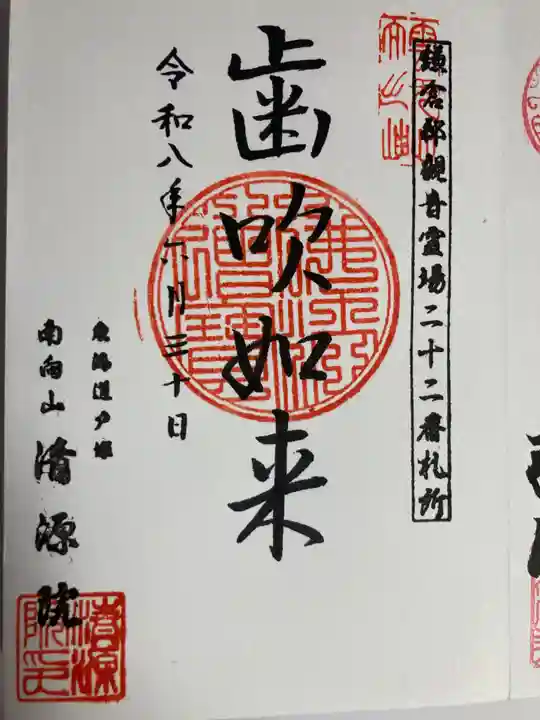 鎌倉郡観音霊場二十二番札所
歯吹如来
令和八年六月三十日
東海道戸塚
南向山
清源院
佛法僧寶
清源院印